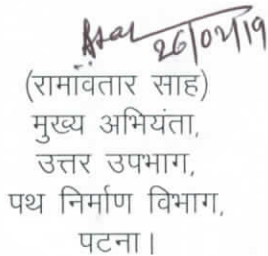 26/02/19
(रामावतार साह)
मुख्य अभियंता,
उत्तर उपभाग,
पथ निर्माण विभाग,
पटना।